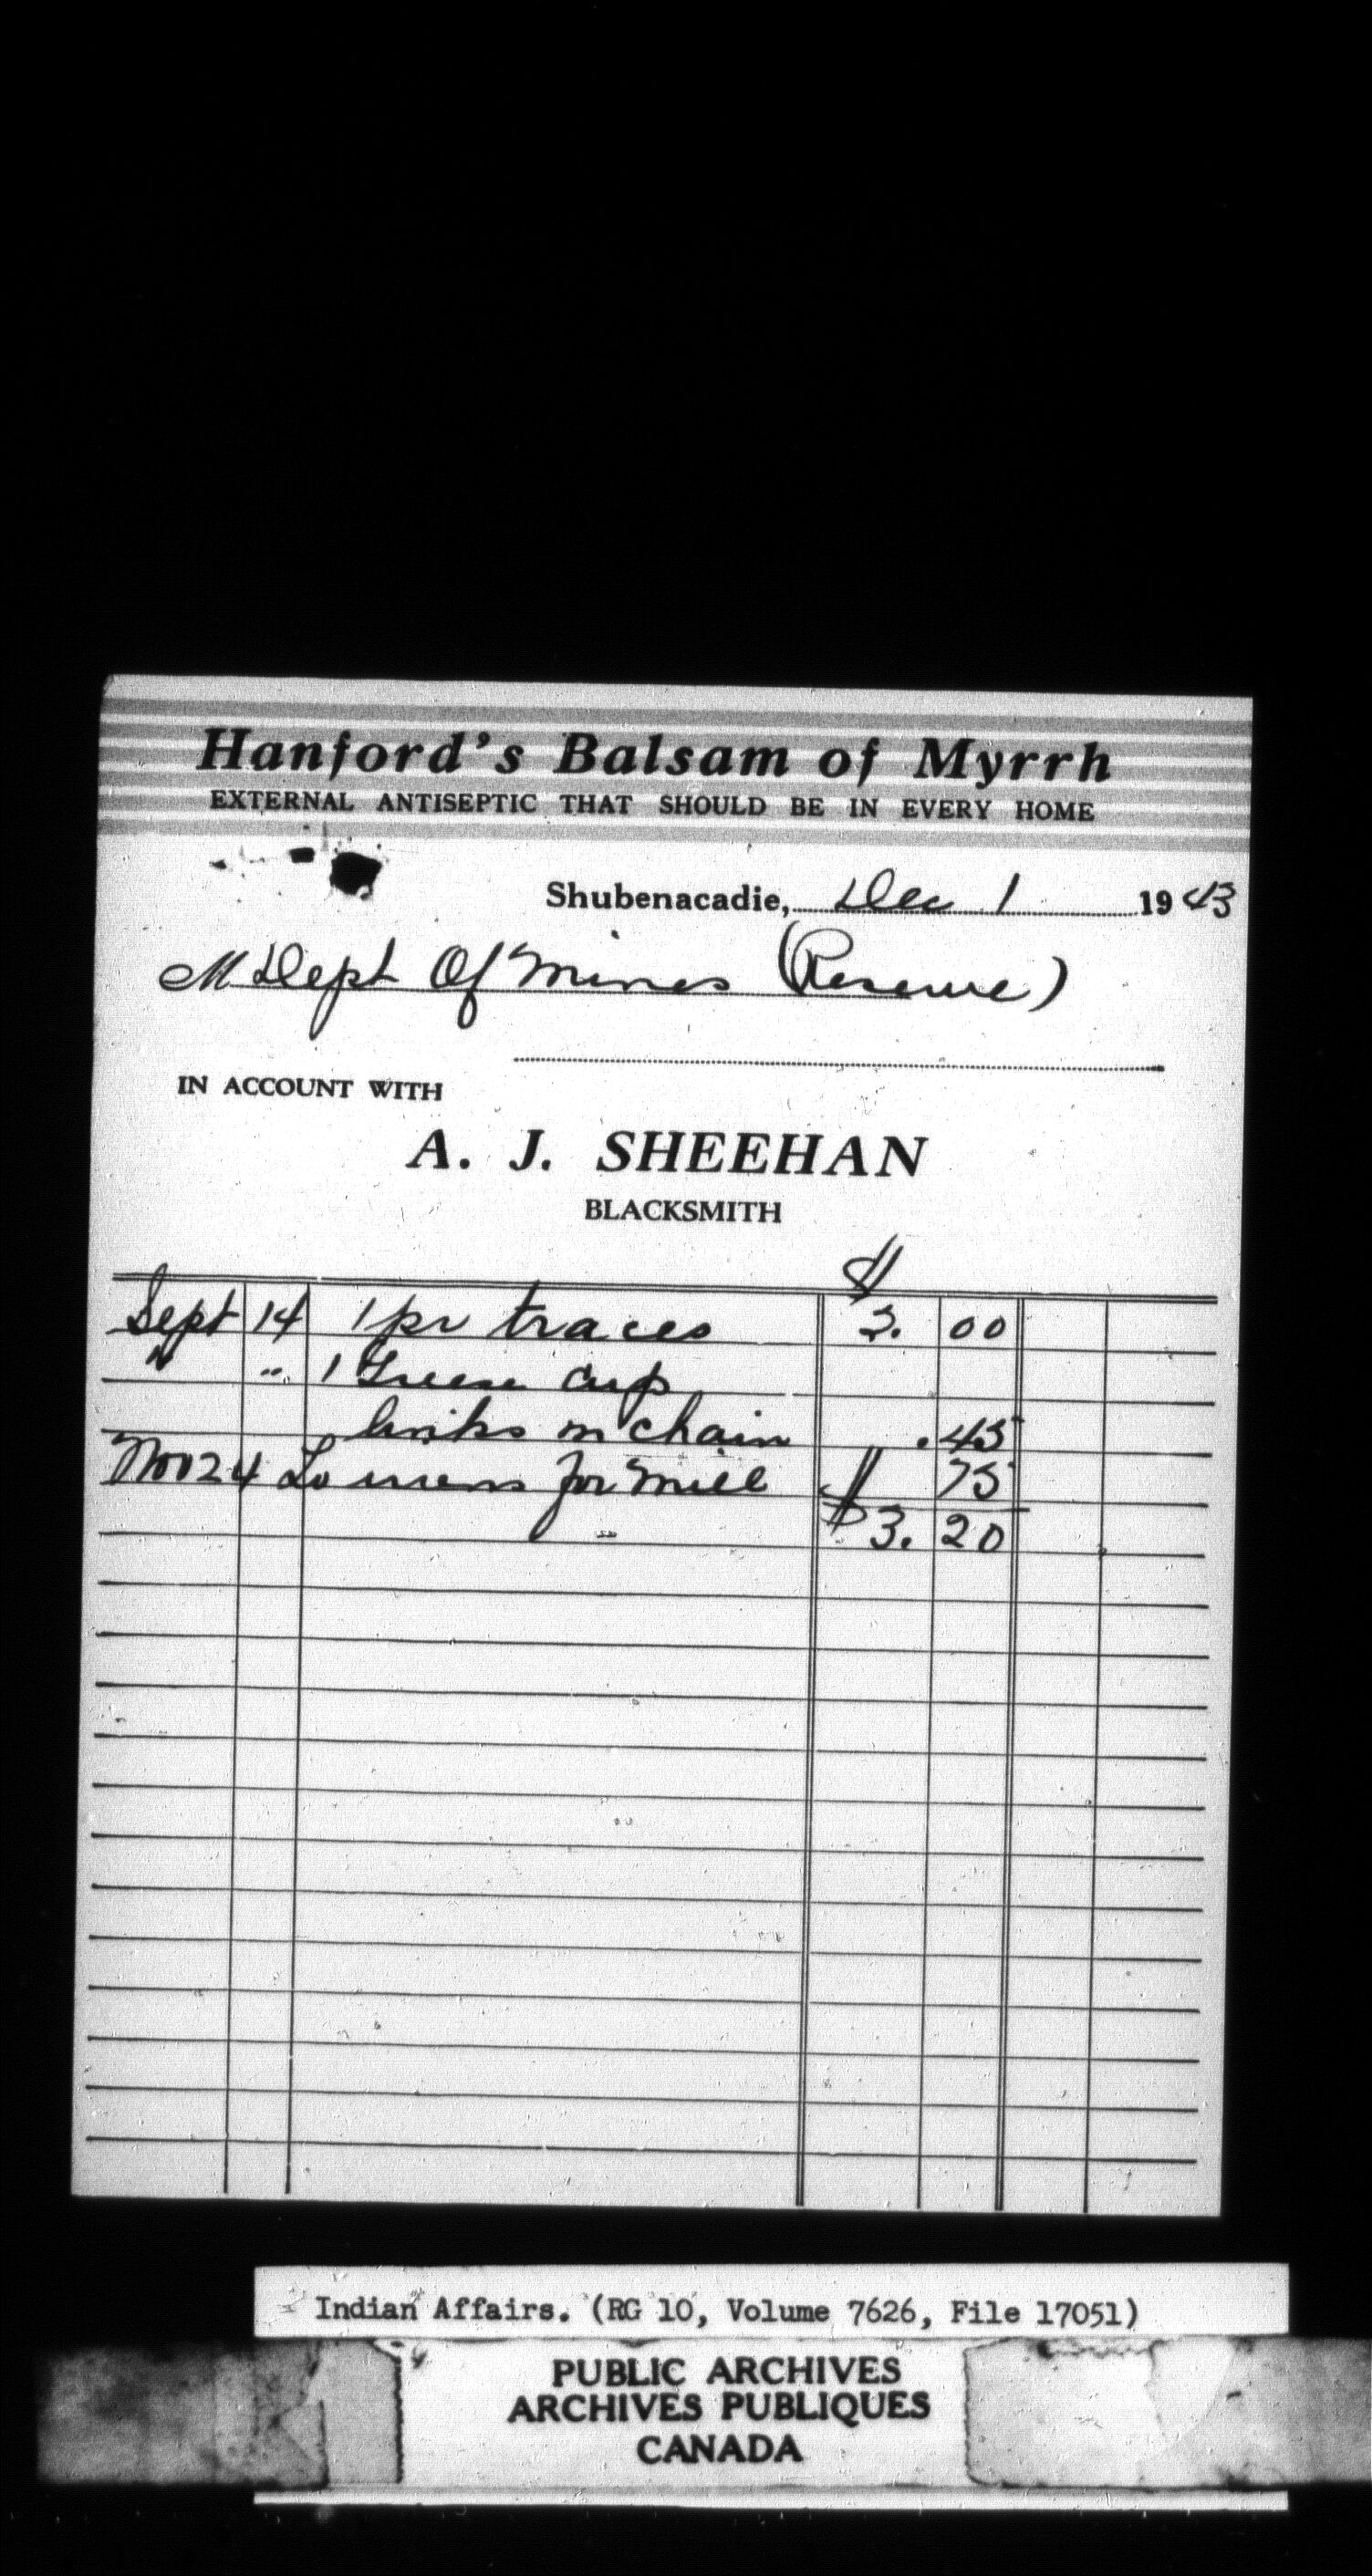 Hanford's Balsam of Myrrh
EXTERNAL ANTISEPTIC THAT SHOULD BE IN EVERY HOME
Shubenacadie, Dec 1 1943
M Dept Of Mines (Reserve)
IN ACCOUNT WITH
A. J. SHEEHAN
BLACKSMITH
$
Sept 14 1 pr traces 2. 00
" " 1 Grease cup
links in chain .45
Nov 24 To irons for mill 75
$3. 20
Indian Affairs. (RG 10, Volume 7626, File 17051)
PUBLIC ARCHIVES
ARCHIVES PUBLIQUES
CANADA